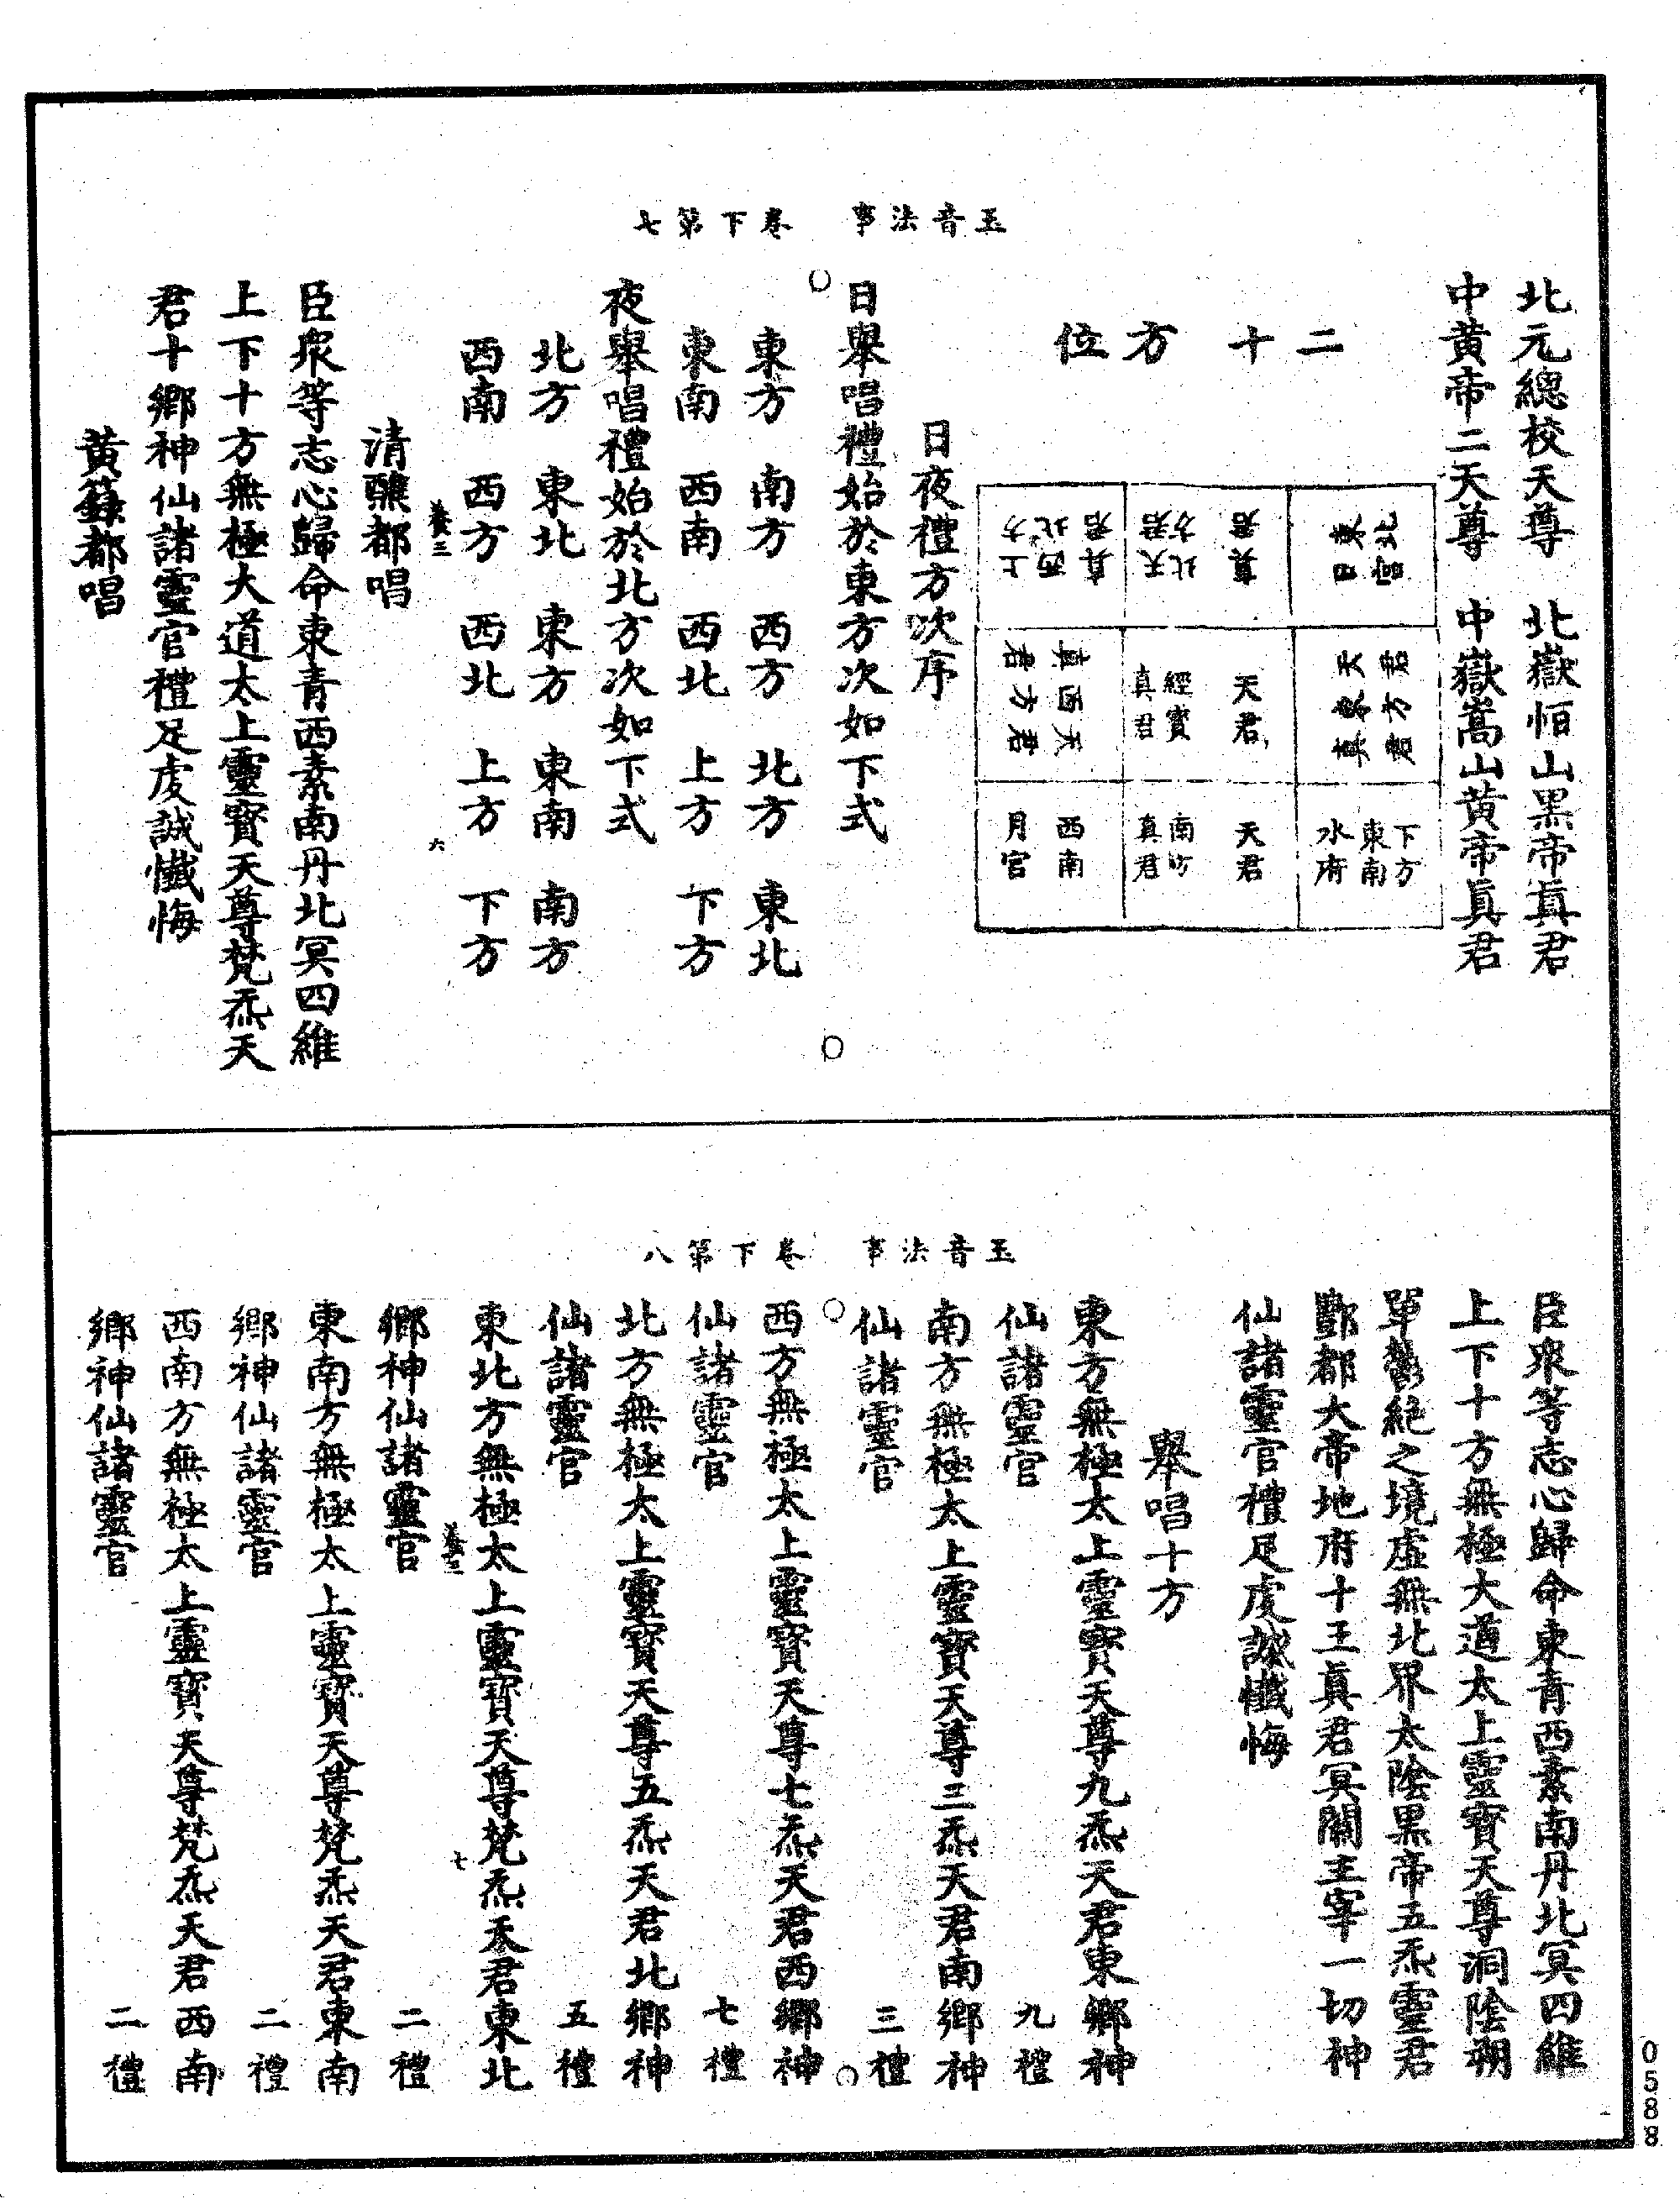 玉音法事　卷下第七
北元總校天尊　北嶽恒山黑帝眞君
中黃帝二天尊　中嶽嵩山黃帝眞君
二十方位
東北
日宮
天君
東方
真君
下方
東南
水府
天君
北方
真君
天君
經寶
真君
天君
南方
真君
真君
西北
上方
天君
西方
真君
西南
月宮
日夜禮方次序
日舉唱禮始於東方次如下式
東方　南方　西方　北方　東北
東南　西南　西北　上方　下方
夜舉唱禮始於北方次如下式
北方　東北　東方　東南　南方
西南　西方　西北　上方　下方
養三　六
清醮都唱
臣衆等志心歸命東青西素南丹北冥四維
上下十方無極大道太上靈寳天尊梵炁天
君十鄉神仙諸靈官禮足虔誠懺悔
黃籙都唱
玉音法事　卷下第八
臣衆等志心歸命東青西素南丹北冥四維
上下十方無極大道太上靈寳天尊洞陰朔
單鬱絕之境虛無北界太陰黑帝五炁靈君
酆都大帝地府十王眞君冥關主宰一切神
仙諸靈官禮足虔誠懺悔
舉唱十方
東方無極太上靈寳天尊九炁天君東鄉神
仙諸靈官　九禮
南方無極太上靈寳天尊三炁天君南鄉神
仙諸靈官　三禮
西方無極太上靈寳天尊七炁天君西鄉神
仙諸靈官　七禮
北方無極太上靈寳天尊五炁天君北鄉神
仙諸靈官　五禮
東北方無極太上靈寳天尊梵炁天君東北
養三　七
鄉神仙諸靈官　二禮
東南方無極太上靈寳天尊梵炁天君東南
鄉神仙諸靈官　二禮
西南方無極太上靈寳天尊梵炁天君西南
鄉神仙諸靈官　二禮
0588